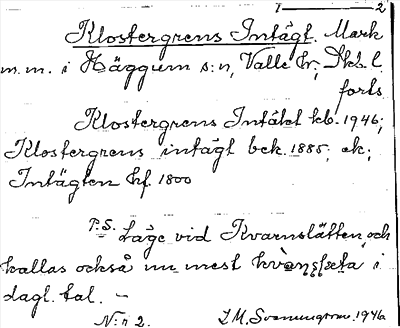 1 — 2
Klostergrens Intägt. Mark
m.m. i Häggum s:n, Valle hr, Skb. l.
forts.
Klostergrens Intäkt kb. 1946;
Klostergrens intägt bck. 1885, ek;
Intägten hf. 1800
P.S. Läge vid Kvarnslätten, och
kallas också nu mest
i
dagl. tal. —
N:r 2. 1946